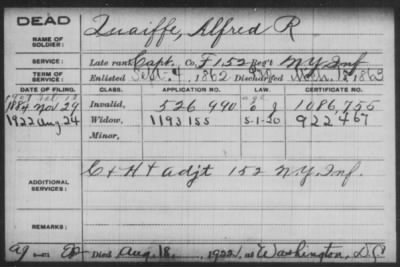 DEAD
NAME OF SOLDIER: Quaiffe, Alfred R
SERVICE: Late rank Capt. Co. F 152 Reg't N.Y. Inf
TERM OF SERVICE: Enlisted Sept. 4, 1862 Discharged 1863
DATE OF FILING. CLASS. APPLICATION NO. LAW. CERTIFICATE NO.
1884 Nov 29 Invalid, 526 990 1086,755
1922 Aug 24 Widow, 1193 155 5-1-20 922467
Minor,
ADDITIONAL SERVICES: C + H + adjt 152 N.Y. Inf.
REMARKS:
Died Aug. 18, 1922, at Washington, D.C